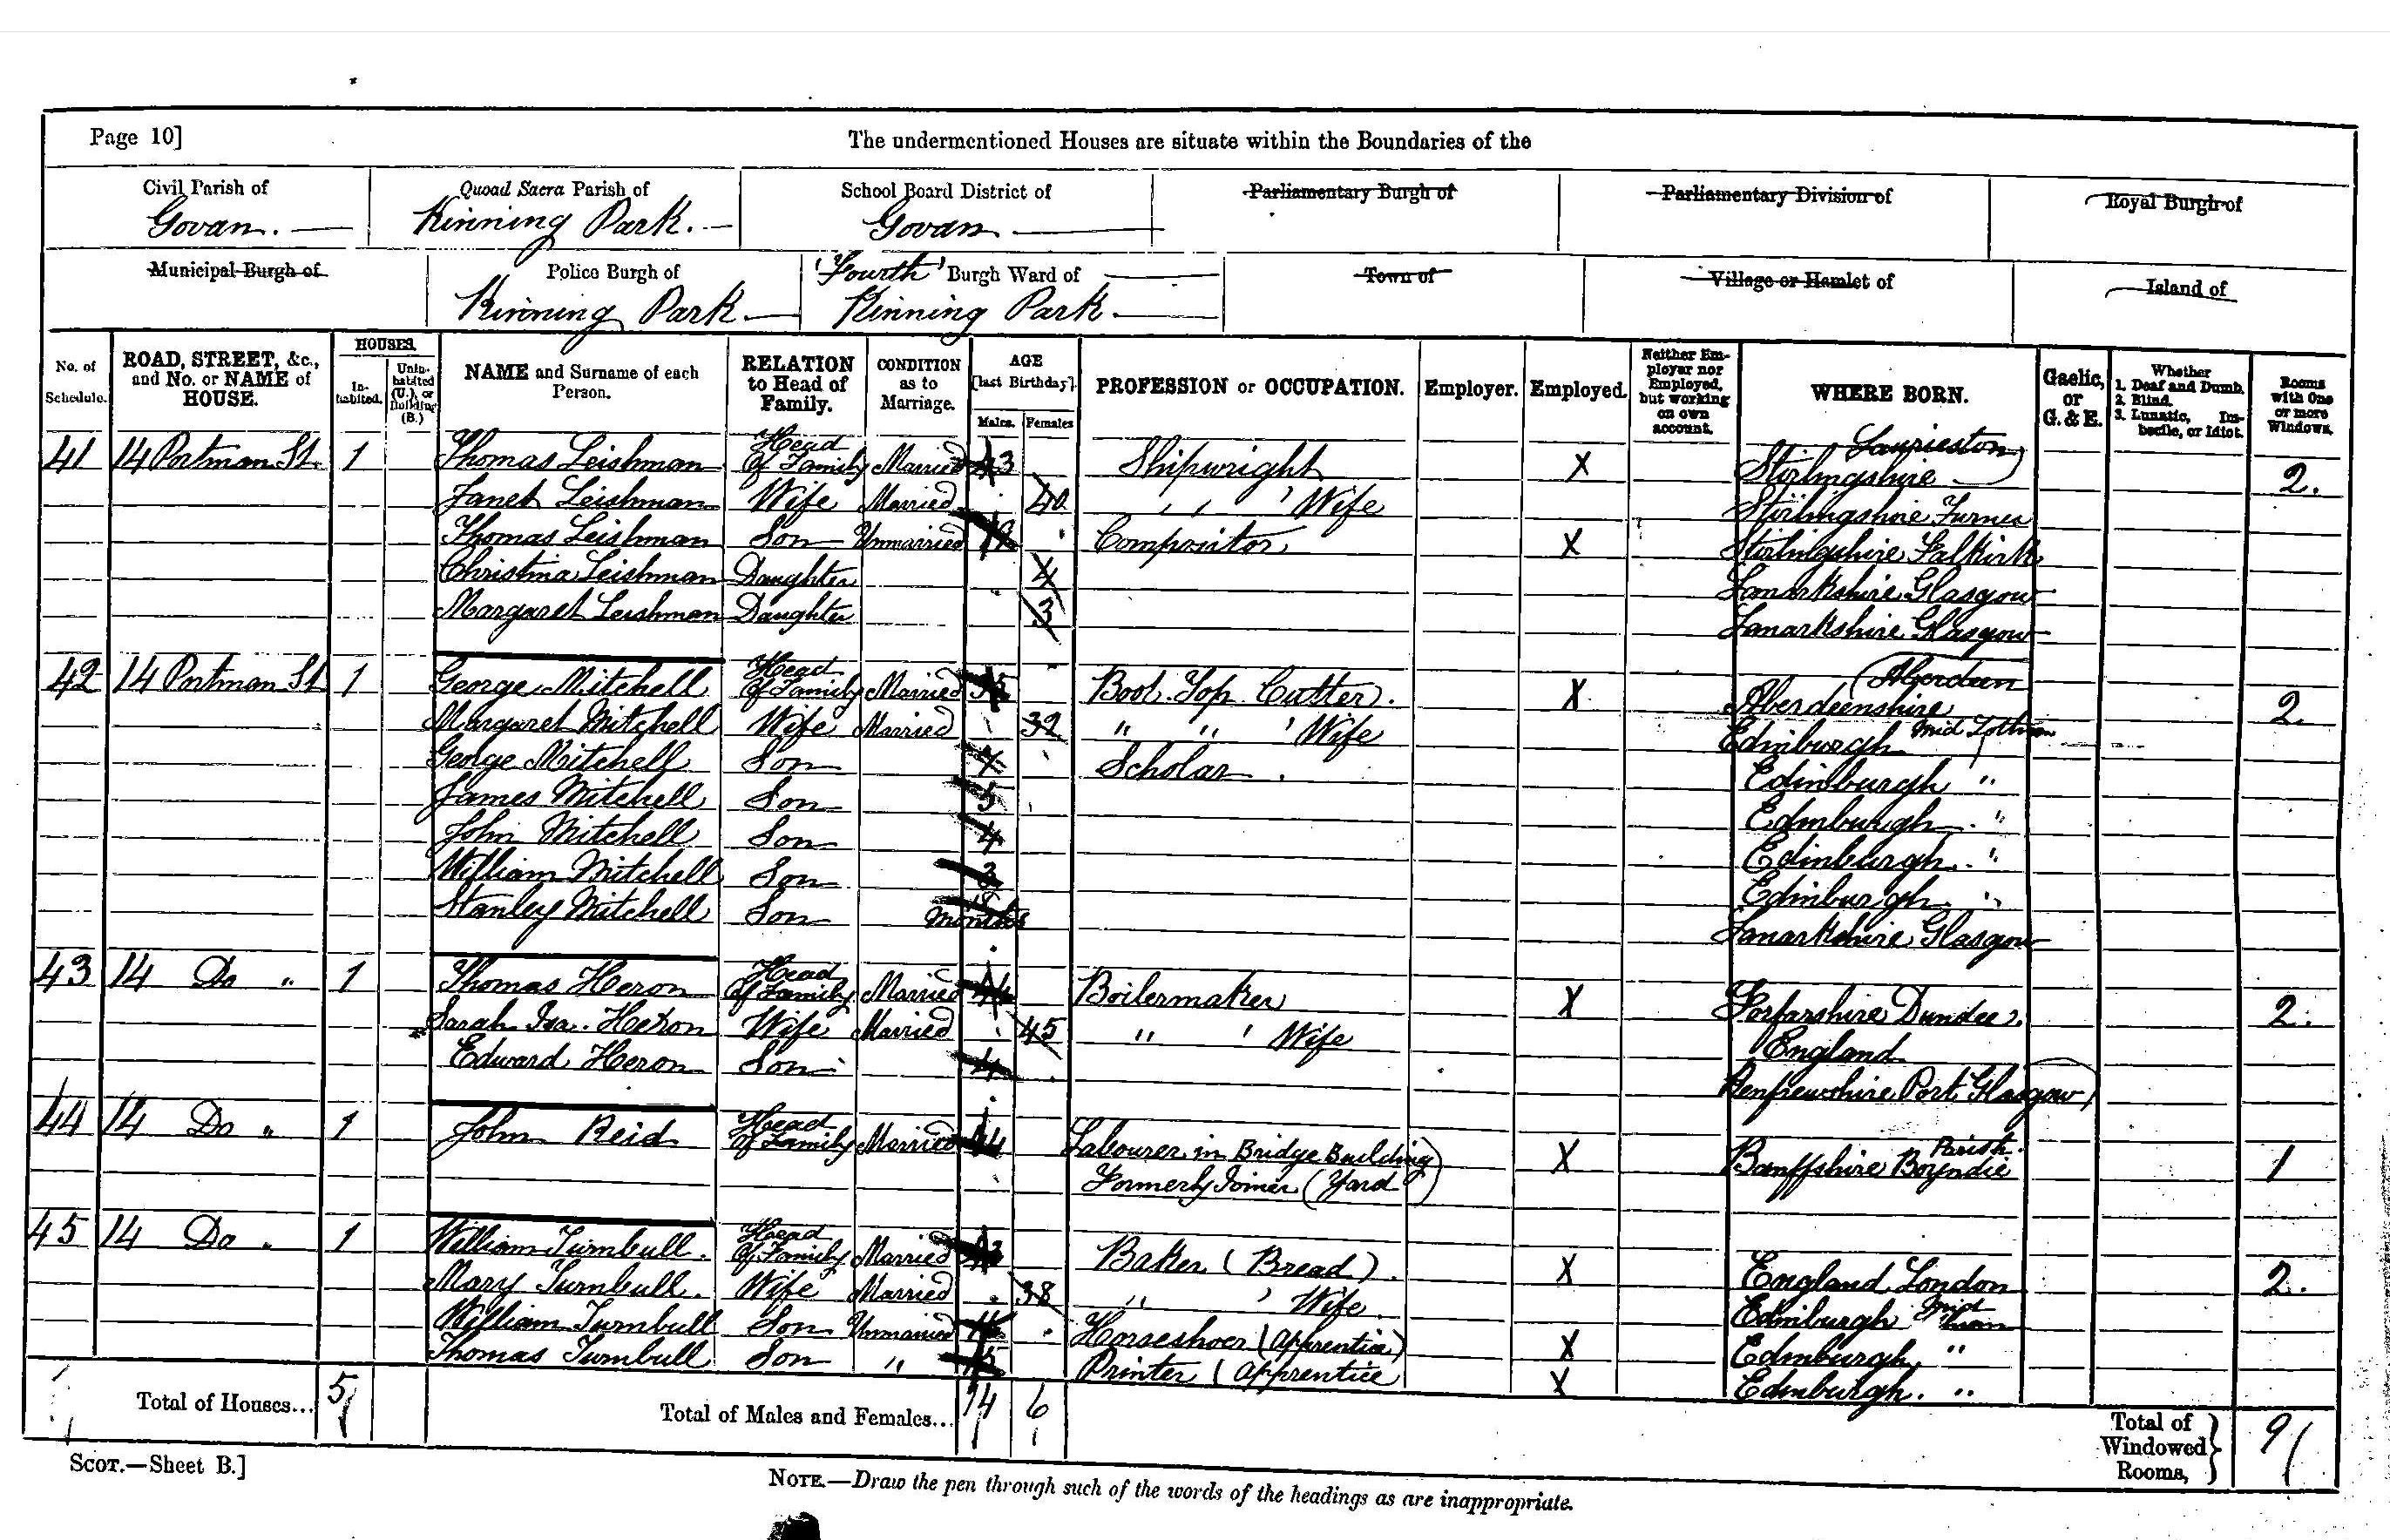 Page 10]
The undermentioned Houses are situate within the Boundaries of the
Civil Parish of Quoad Sacra Parish of School Board District of Parliamentary Burgh of Parliamentary Division of Royal Burgh of
Govan. Kinning Park. Govan
Municipal Burgh of Police Burgh of 'Fourth' Burgh Ward of Town of Village or Hamlet of Island of
Kinning Park Kinning Park
No. of Schedule. ROAD, STREET, &c., and No. or NAME of HOUSE. HOUSES. In-habited. Unin-habited (U.), or Building (B.) NAME and Surname of each Person. RELATION to Head of Family. CONDITION as to Marriage. AGE [last Birthday]. Males. Females PROFESSION or OCCUPATION. Employer. Employed. Neither Employer nor Employed, but working on own account. WHERE BORN. Gaelic, or G. & E. Whether 1. Deaf and Dumb. 2. Blind. 3. Lunatic, Imbecile, or Idiot. Rooms with One or more Windows.
41 14 Portman St. 1 Thomas Leishman Head Of Family Married 43 Shipwright X Stirlingshire Laurieston 2.
Janet Leishman Wife Married 40 " " ' Wife Stirlingshire
Thomas Leishman Son Unmarried Compositor X Stirlingshire Falkirk
Christina Leishman Daughter 4 Lanarkshire Glasgow
Margaret Leishman Daughter 3 Lanarkshire Glasgow
42 14 Portman St 1 George Mitchell Head Of Family Married 35 Boot Top Cutter. X Aberdeenshire (Aberdeen 2.
Margaret Mitchell Wife Married 32 " " ' Wife Edinburgh Mid Lothian
George Mitchell Son 7 Scholar. Edinburgh "
James Mitchell Son 5 Edinburgh "
John Mitchell Son 4 Edinburgh "
William Mitchell Son 3 Edinburgh "
Stanley Mitchell Son months Lanarkshire Glasgow
43 14 Do " 1 Thomas Heron Head Of Family Married 44 Boilermaker X Forfarshire Dundee. 2.
Sarah Isa. Heron Wife Married 45 " ' Wife England
Edward Heron Son 4 Renfrewshire Port Glasgow
44 14 Do " 1 John Reid Head Of Family Married 44 Labourer in Bridge Building X Banffshire Boyndie Parish. 1
Formerly Joiner (Yard)
45 14 Do " 1 William Turnbull. Head Of Family Married Baker (Bread). X England London 2.
Mary Turnbull. Wife Married 38 " ' Wife. Edinburgh Mid
William Turnbull Son Unmarried 16 Horseshoer (Apprentice) X Edinburgh, "
Thomas Turnbull Son " 15 Printer (Apprentice X Edinburgh. "
Total of Houses... 5 Total of Males and Females... 14 6 Total of Windowed Rooms, 9
SCOT.—Sheet B.]
NOTE.—Draw the pen through such of the words of the headings as are inappropriate.